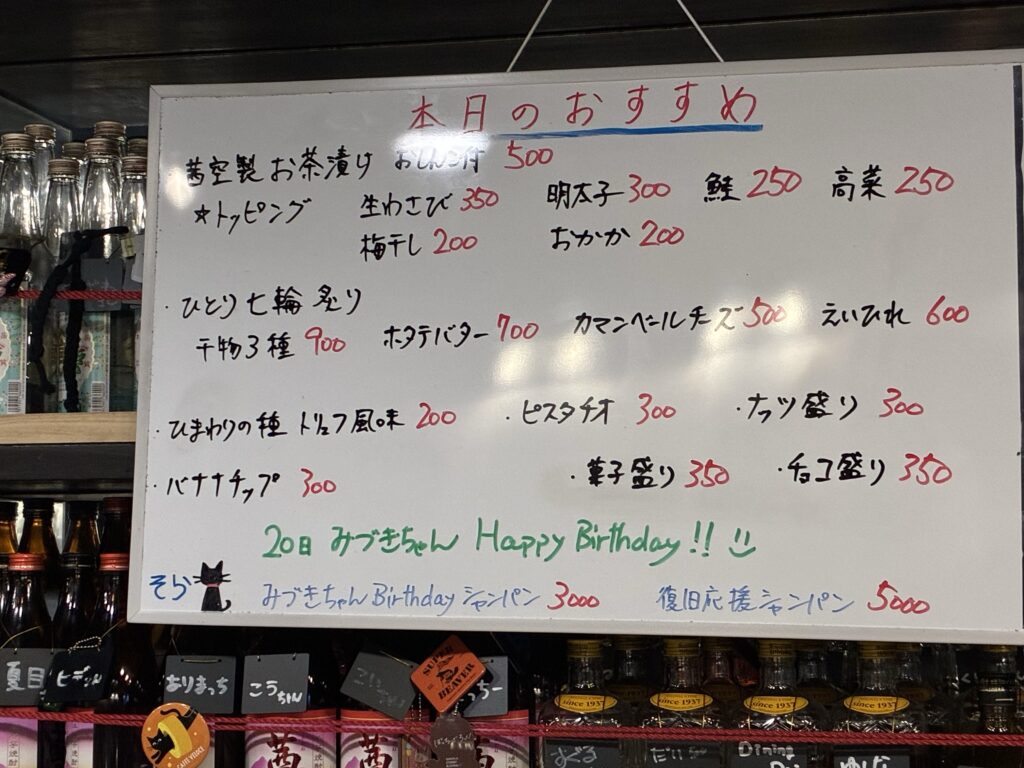 本日のおすすめ
茜空製 お茶漬け おしんこ付 500
☆トッピング 生わさび 350 明太子 300 鮭 250 高菜 250
梅干し 200 おかか 200
・ひとり七輪炙り
干物3種 900 ホタテバター 700 カマンベールチーズ 500 えいひれ 600
・ひまわりの種 トリュフ風味 200 ・ピスタチオ 300 ・ナッツ盛り 300
・バナナチップ 300 ・菓子盛り 350 ・チョコ盛り 350
20日 みづきちゃん Happy Birthday!!
そら みづきちゃん Birthday シャンパン 3000 復旧応援シャンパン 5000
夏目 ヒデ
ありまっち
こうちゃん
SUPER BEAVER
っちー
since 1937
since 1937
since 1937
since 1937
茜
茜
茜
だい
Dining